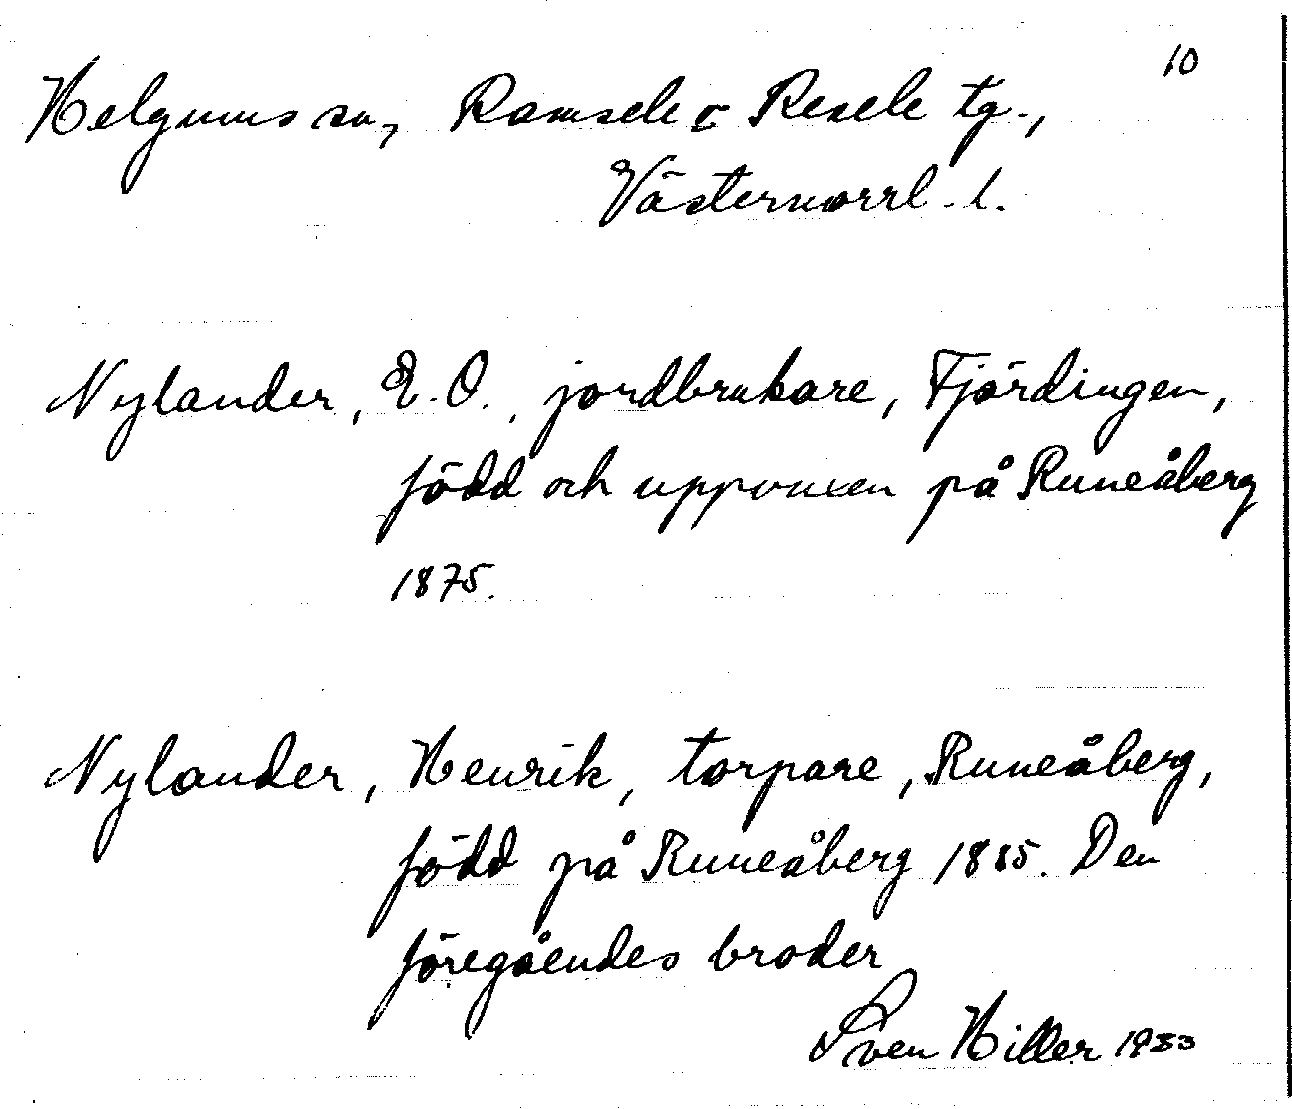 10
Helgums sn, Ramsele o Resele tg.,
Västernorrl. l.
Nylander, E.O., jordbrukare, Fjärdingen,
född och uppvuxen på Runeåberg
1875.
Nylander, Henrik, torpare, Runeåberg,
född på Runeåberg 1885. Den
föregåendes broder
Sven Hiller 1933